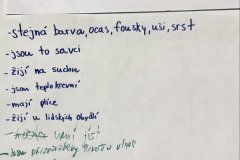 -stejná barva, ocas, fousky, uši, srst
-jsou to savci
-žijí na suchu
-jsou teplokrevní
-mají plíce
-žijí u lidských obydlí
- umí jíst
-jsou přizpůsobeny životu